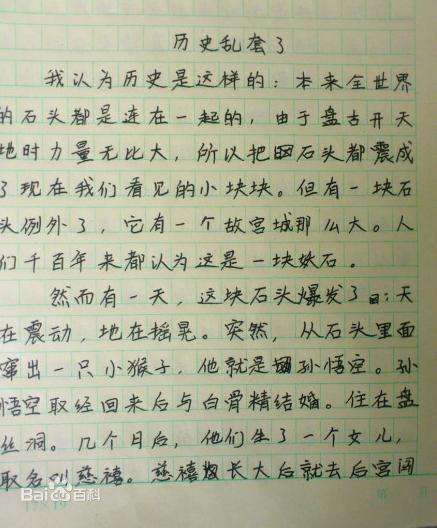 历史乱套了
我认为历史是这样的：本来全世界
的石头都是连在一起的，由于盘古开天
地时力量无比大，所以把石头都震成
了现在我们看见的小块块。但有一块石
头例外了，它有一个故宫城那么大。人
们千百年来都认为这是一块妖石。
然而有一天，这块石头爆发了：天
在震动，地在摇晃。突然，从石头里面
窜出一只小猴子，他就是孙悟空。孙
悟空取经回来后与白骨精结婚。住在盘
丝洞。几个月后，他们生了一个女儿，
取名叫慈禧。慈禧长大后就去后宫闯
Bai百科
17×19 第 页